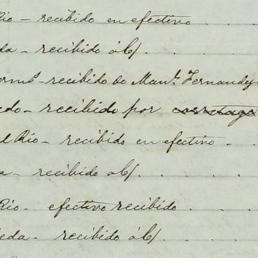 Rio - recibido en efectivo
da - recibido á c/
recibido de Manl. Fernandez
edo - recibido por corretage
l Rio - recibido en efectivo.
a - recibido á c/
Rio. efectivo recibido.
eda - recibido á c/